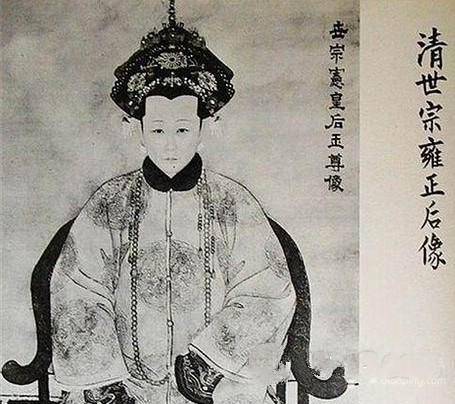 清世宗雍正后像
世宗憲皇后玉尊像